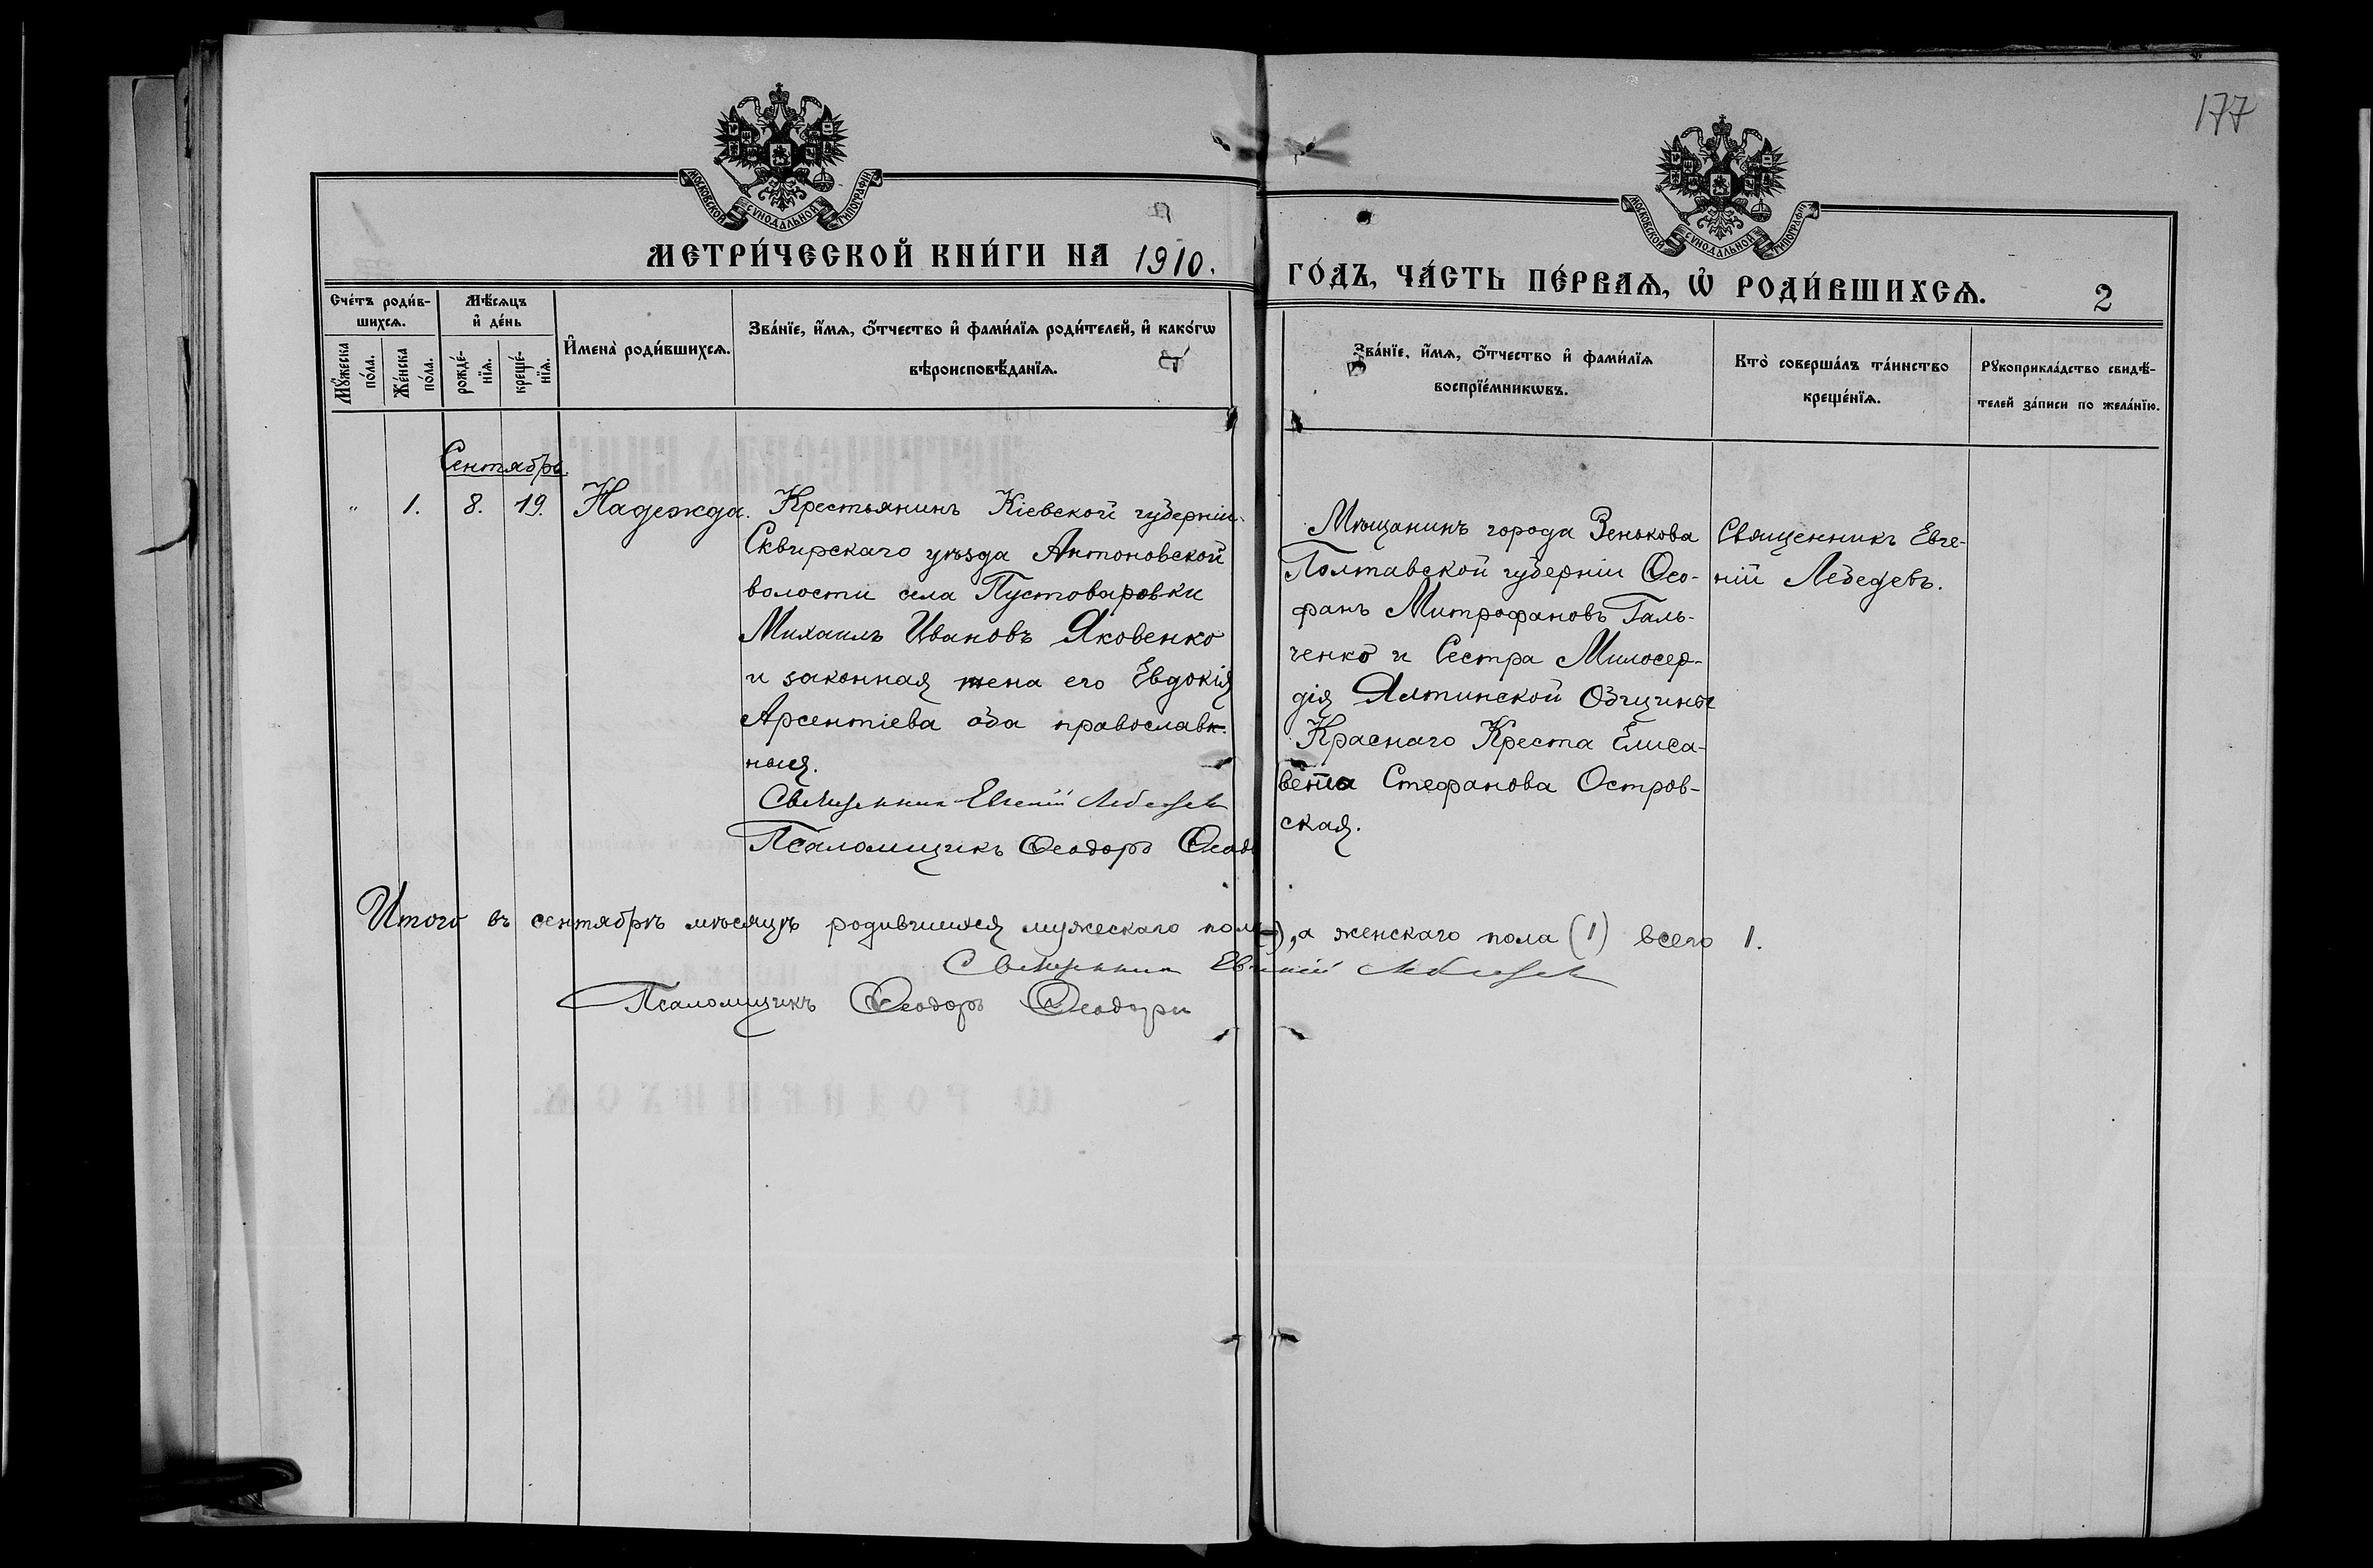 177
МОСКОВСКОЙ СѴНОДАЛЬНОЙ ТИПОГРАФІИ
МОСКОВСКОЙ СѴНОДАЛЬНОЙ ТИПОГРАФІИ
МЕТРИ́ЧЕСКОЙ КНИ́ГИ НА 1910.
ГО́ДЪ, ЧА́СТЬ ПЕ́РВАѦ, Ѽ РОДИ́ВШИХСѦ.
2
Сче́тъ роди́в-
шихсѧ.
Мꙋ́жеска
по́ла.
Же́нска
по́ла.
Мѣ́сѧцъ
и҆ де́нь
рожде́-
нїѧ.
креще́-
нїѧ.
И҆мена̀ роди́вшихсѧ.
Зва́нїе, и҆́мѧ, ѻ҆́тчество и҆ фами́лїѧ роди́телей, и҆ како́гѡ
вѣроисповѣ́данїѧ.
Зва́нїе, и҆́мѧ, ѻ҆́тчество и҆ фами́лїѧ
воспрїе́мникѡвъ.
Кто̀ соверша́лъ та́инство
креще́нїѧ.
Рꙋкоприкла́дство свидѣ́-
телей за́писи по жела́нїю.
Сентябрь.
„ 1. 8. 19. Надежда.
Крестьянинъ Кіевской губерніи
Сквирскаго уѣзда Антоновской
волости села Пустоваровки
Михаилъ Ивановъ Яковенко
и законная жена его Евдокія
Арсентіева оба православн-
ныя.
Священникъ Евгеній Лебедевъ
Псаломщикъ Ѳеодоръ
Мѣщанинъ города Зенькова
Полтавской губерніи Ѳео-
фанъ Митрофановъ Галь-
ченко и Сестра Милосер-
дія Ялтинской Общины
Краснаго Креста Елиса-
вета Стефанова Остров-
ская.
Священникъ Евге-
ній Лебедевъ.
Итого въ сентябрѣ мѣсяцѣ родившихся мужескаго пола (-), а женскаго пола (1) всего 1.
Священникъ Евгеній Лебедевъ
Псаломщикъ Ѳеодоръ Ѳеодори